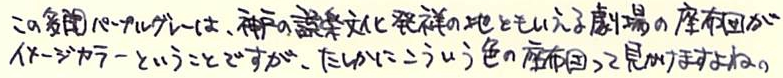 この多聞パープルグレーは、神戸の談楽文化発祥の地ともいえる劇場の座布団が
イメージカラーということですが、たしかにこういう色の座布団って見かけますよね。